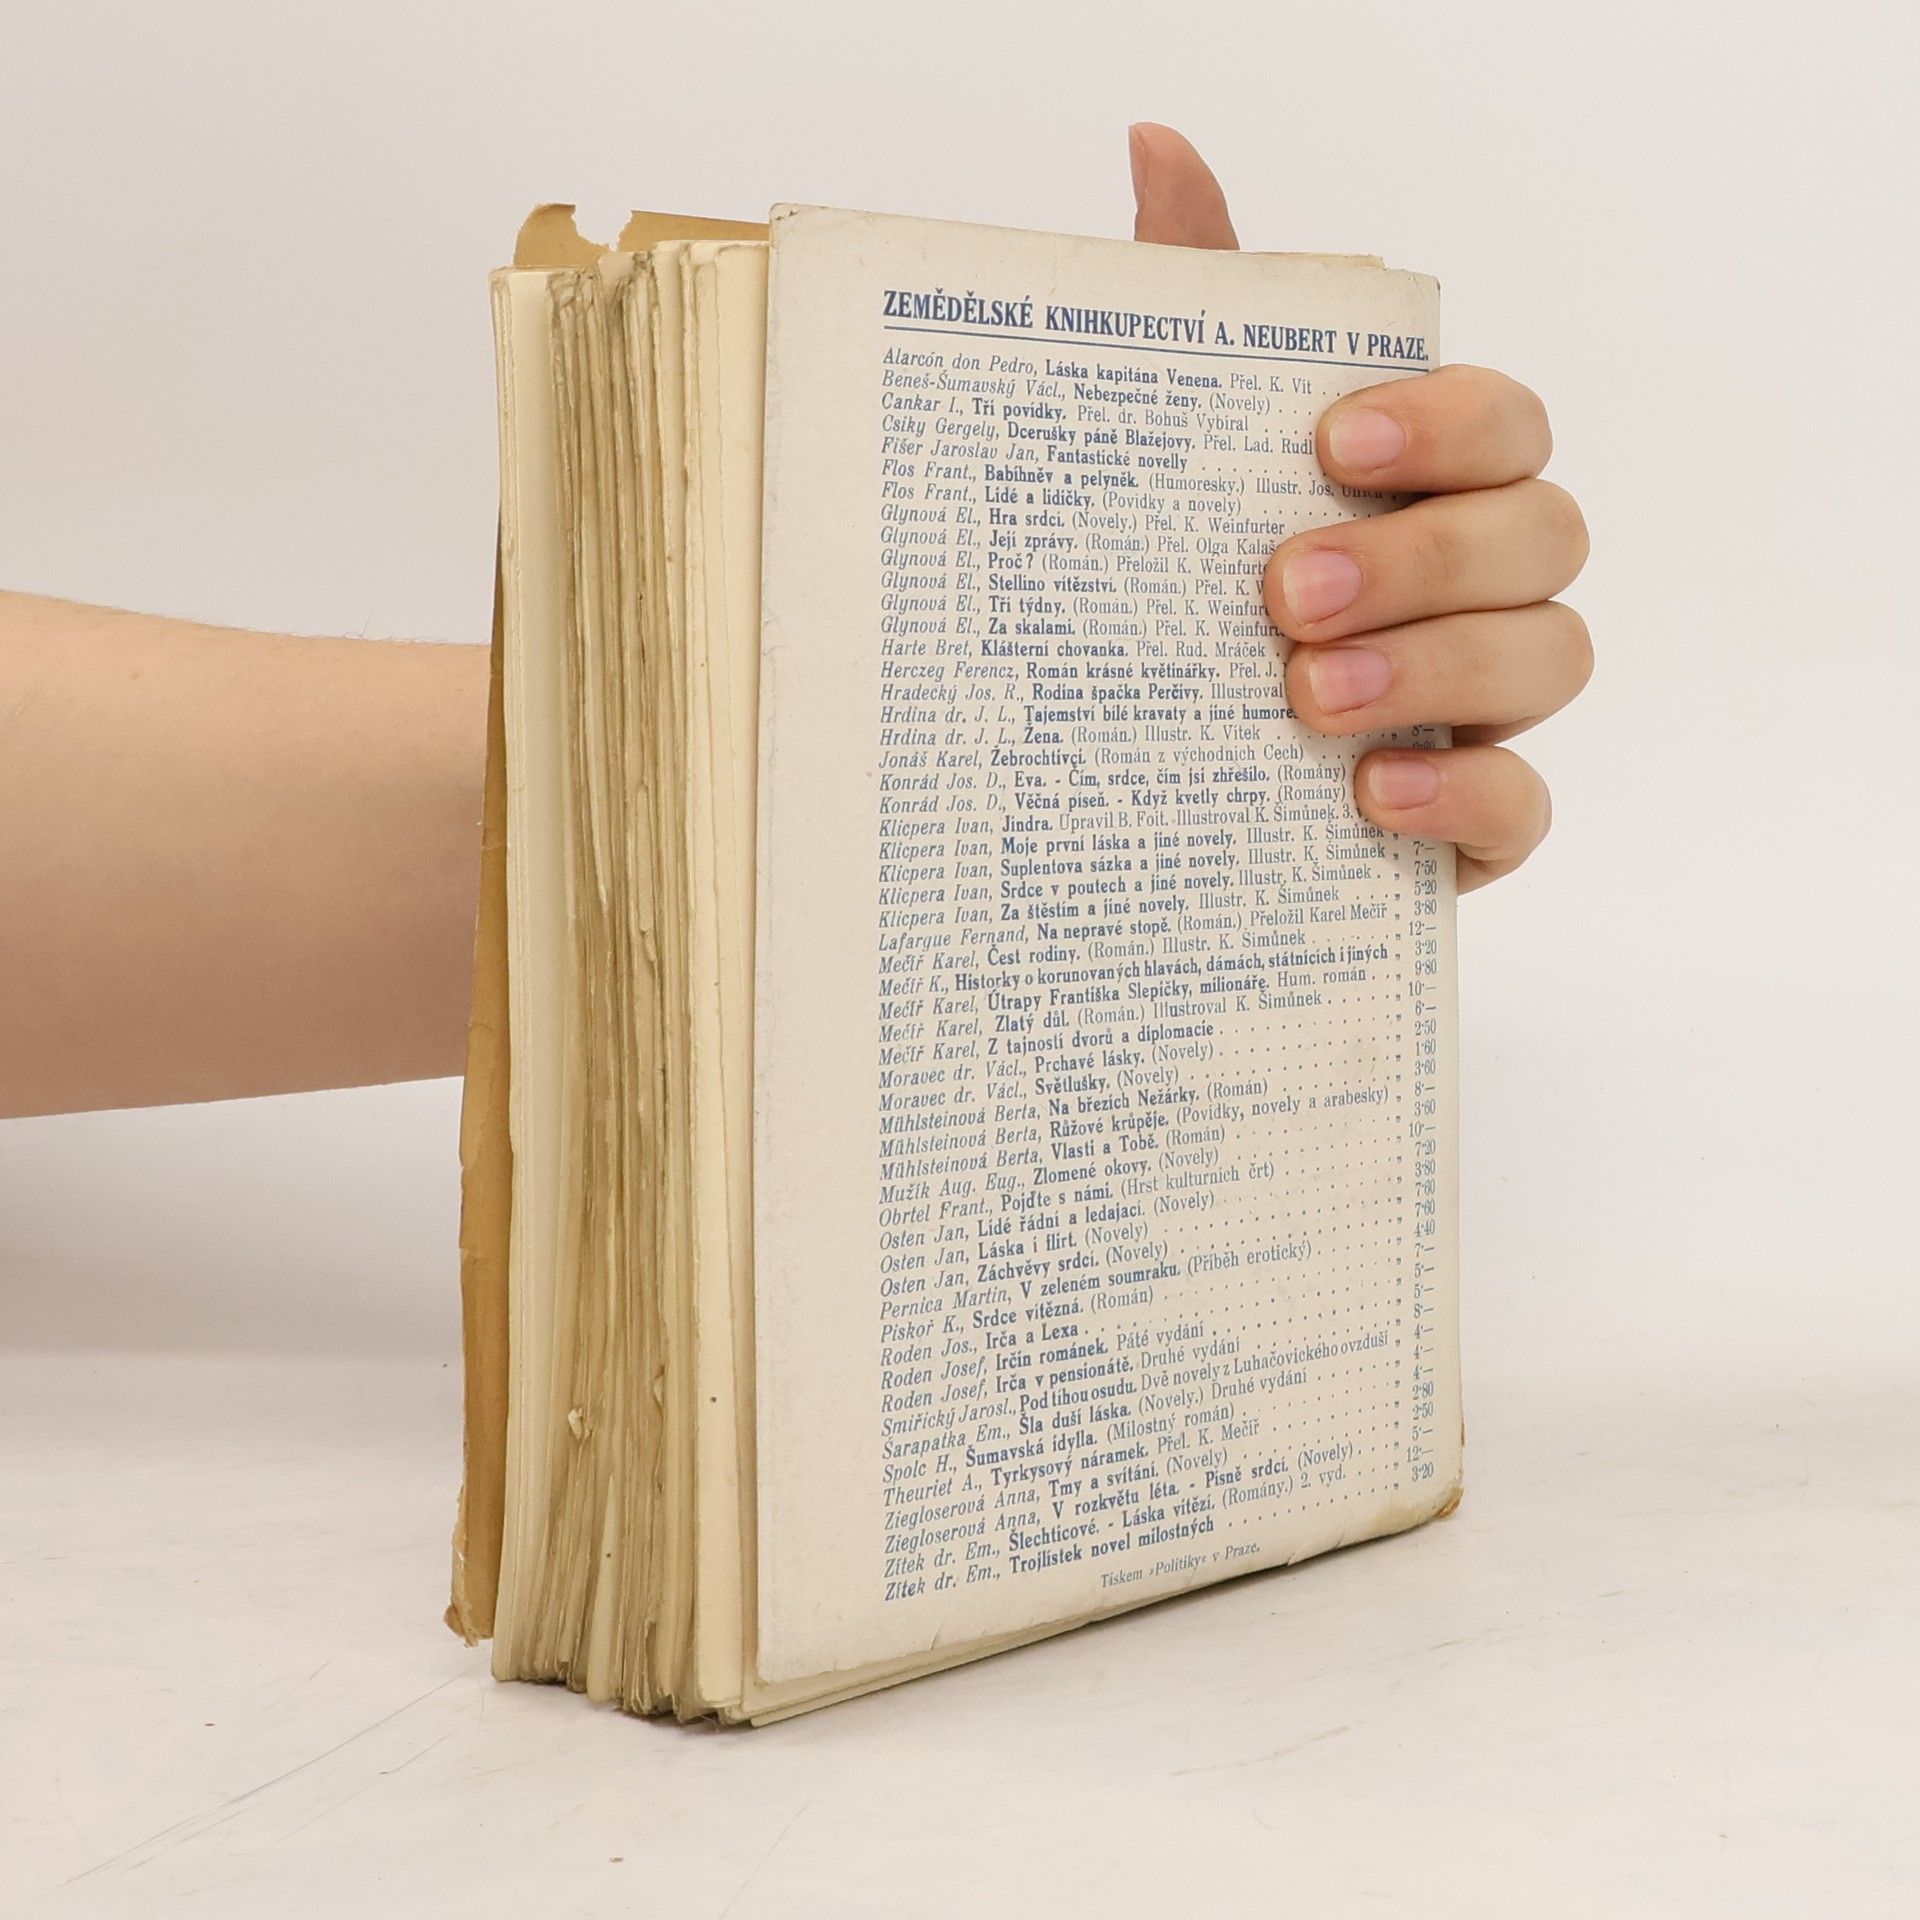 ZEMĚDĚLSKÉ KNIHKUPECTVÍ A. NEUBERT V PRAZE.
Alarcón don Pedro, Láska kapitána Venena. Přel. K. Vít . .
Beneš-Šumavský Václ., Nebezpečné ženy. (Novely) . . .
Cankar I., Tři povídky. Přel. dr. Bohuš Vybíral . . . .
Csiky Gergely, Dcerušky páně Blažejovy. Přel. Lad. Rudl
Fišer Jaroslav Jan, Fantastické novelly . . . . . . .
Flos Frant., Babíhněv a pelyněk. (Humoresky.) Illustr. Jos. Ullrich .
Flos Frant., Lidé a lidičky. (Povídky a novely) . . . . .
Glynová El., Hra srdcí. (Novely.) Přel. K. Weinfurter .
Glynová El., Její zprávy. (Román.) Přel. Olga
Glynová El., Proč? (Román.) Přeložil K.
Glynová El., Stellino vítězství. (Román.) Přel. K.
Glynová El., Tři týdny. (Román.) Přel. K.
Glynová El., Za skalami. (Román.) Přel. K.
Harte Bret, Klášterní chovanka. Přel. Rud. Mráček .
Herczeg Ferencz, Román krásné květinářky. Přel. J.
Hradecký Jos. R., Rodina špačka Perčivy. Illustroval
Hrdina dr. J. L., Tajemství bílé kravaty a jiné
Hrdina dr. J. L., Žena. (Román.) Illustr. K. Vítek . . . . . . „ 8·—
Jonáš Karel, Žebrochtivci. (Román z východních Čech) . . .
Konrád Jos. D., Eva. - Čím, srdce, čím jsi zhřešilo. (Romány)
Konrád Jos. D., Věčná píseň. - Když kvetly chrpy. (Romány)
Klicpera Ivan, Jindra. Upravil B. Foit. Illustroval K. Šimůnek. 3.
Klicpera Ivan, Moje první láska a jiné novely. Illustr. K. Šimůnek „ 7·—
Klicpera Ivan, Suplentova sázka a jiné novely. Illustr. K. Šimůnek „ 7·50
Klicpera Ivan, Srdce v poutech a jiné novely. Illustr. K. Šimůnek . „ 5·20
Klicpera Ivan, Za štěstím a jiné novely. Illustr. K. Šimůnek . . . „ 3·80
Lafargue Fernand, Na nepravé stopě. (Román.) Přeložil Karel Mečíř „ 12·—
Mečíř Karel, Čest rodiny. (Román.) Illustr. K. Šimůnek . . . . . „ 3·20
Mečíř K., Historky o korunovaných hlavách, dámách, státnících i jiných „ 9·80
Mečíř Karel, Útrapy Františka Slepičky, milionáře. Hum. román . . „ 10·—
Mečíř Karel, Zlatý důl. (Román.) Illustroval K. Šimůnek . . . . . „ 6·—
Mečíř Karel, Z tajností dvorů a diplomacie . . . . . . . . . . „ 2·50
Moravec dr. Václ., Prchavé lásky. (Novely) . . . . . . . . . . „ 1·60
Moravec dr. Václ., Světlušky. (Novely) . . . . . . . . . . . „ 3·60
Mühlsteinová Berta, Na březích Nežárky. (Román) . . . . . . . „ 8·—
Mühlsteinová Berta, Růžové krůpěje. (Povídky, novely a arabesky) „ 3·60
Mühlsteinová Berta, Vlasti a Tobě. (Román) . . . . . . . . . „ 10·—
Mužík Aug. Eug., Zlomené okovy. (Novely) . . . . . . . . . . „ 7·20
Obrtel Frant., Pojďte s námi. (Hrst kulturních črt) . . . . . . „ 3·80
Osten Jan, Lidé řádní a ledajací. (Novely) . . . . . . . . . . „ 7·60
Osten Jan, Láska i flirt. (Novely) . . . . . . . . . . . . . „ 7·60
Osten Jan, Záchvěvy srdcí. (Novely) . . . . . . . . . . . . „ 4·40
Pernica Martin, V zeleném soumraku. (Příběh erotický) . . . . . „ 7·—
Piskoř K., Srdce vítězná. (Román) . . . . . . . . . . . . . „ 5·—
Roden Jos., Irča a Lexa . . . . . . . . . . . . . . . . „ 5·—
Roden Josef, Irčin románek. Páté vydání . . . . . . . . . . „ 8·—
Roden Josef, Irča v pensionátě. Druhé vydání . . . . . . . . „ 4·—
Smiřický Jarosl., Pod tíhou osudu. Dvě novely z Luhačovického ovzduší „ 4·—
Šarapatka Em., Šla duší láska. (Novely.) Druhé vydání . . . . . „ 4·—
Spolc H., Šumavská idylla. (Milostný román) . . . . . . . . . „ 2·80
Theuriet A., Tyrkysový náramek. Přel. K. Mečíř . . . . . . . . „ 2·50
Ziegloserová Anna, Tmy a svítání. (Novely) . . . . . . . . . „ 5·—
Ziegloserová Anna, V rozkvětu léta. - Písně srdcí. (Novely) . . . „ 12·—
Zítek dr. Em., Šlechticové. - Láska vítězí. (Romány.) 2. vyd. . . . „ 3·20
Zítek dr. Em., Trojlístek novel milostných . . . . . . . . . „
Tiskem »Politiky« v Praze.